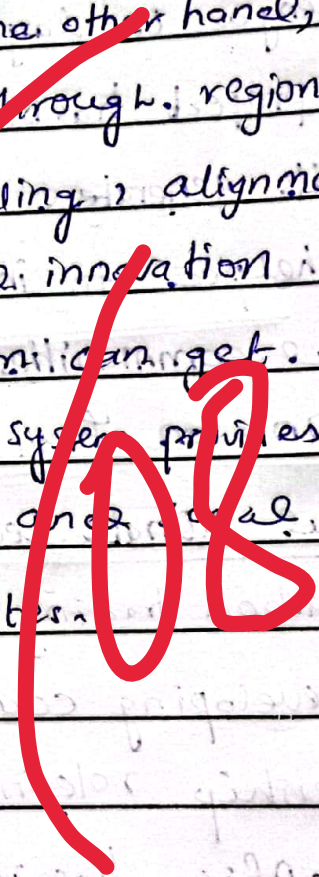 other hand,
through. region
ling, alignme
innovation
can get.
system provides
and
tes.
08